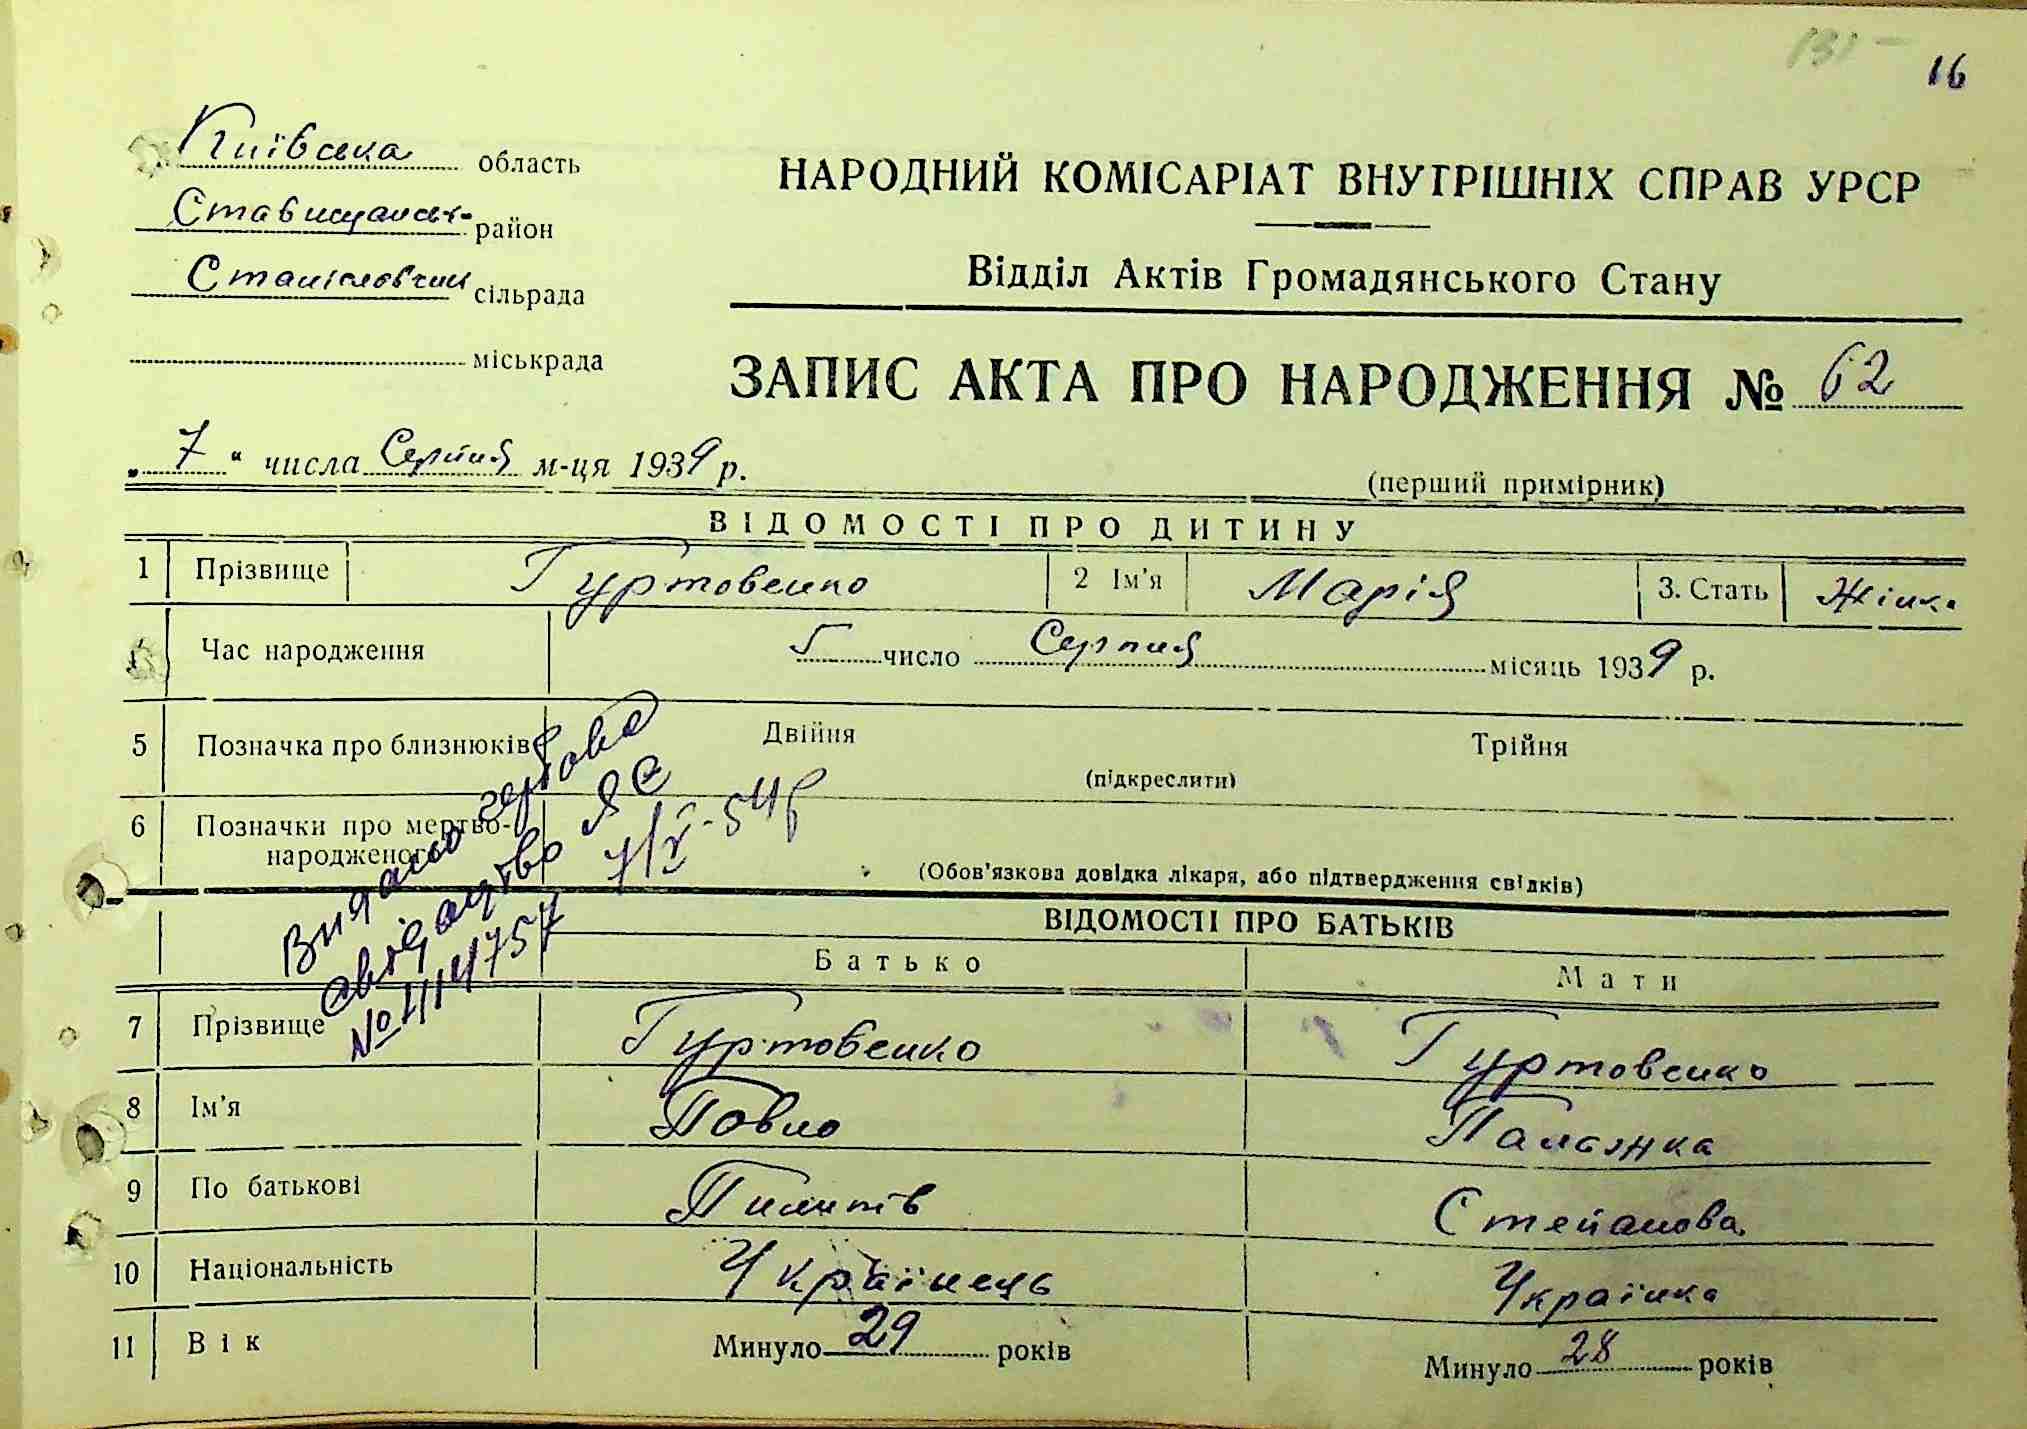 131 –
16
Київська область
Ставищанськ. район
Станіславчик сільрада
міськрада
НАРОДНИЙ КОМІСАРІАТ ВНУТРІШНІХ СПРАВ УРСР
Відділ Актів Громадянського Стану
ЗАПИС АКТА ПРО НАРОДЖЕННЯ № 62
„ 7 “ числа Серпня м-ця 1939 р.
(перший примірник)
ВІДОМОСТІ ПРО ДИТИНУ
1 Прізвище Гуртовенко 2 Ім'я Марія 3. Стать Жінк.
Час народження 5 число Серпня місяць 1939 р.
5 Позначка про близнюків Двійня Трійня
(підкреслити)
6 Позначки про мертво-
народженого
(Обов'язкова довідка лікаря, або підтвердження свідків)
Видано гербове
свідоцтво ЯЄ
№ 4114757
7/X-54р
ВІДОМОСТІ ПРО БАТЬКІВ
Батько Мати
7 Прізвище Гуртовенко Гуртовенко
8 Ім'я Павло Палажка
9 По батькові Пилипів Степанова
10 Національність Українець Українка
11 Вік Минуло 29 років Минуло 28 років